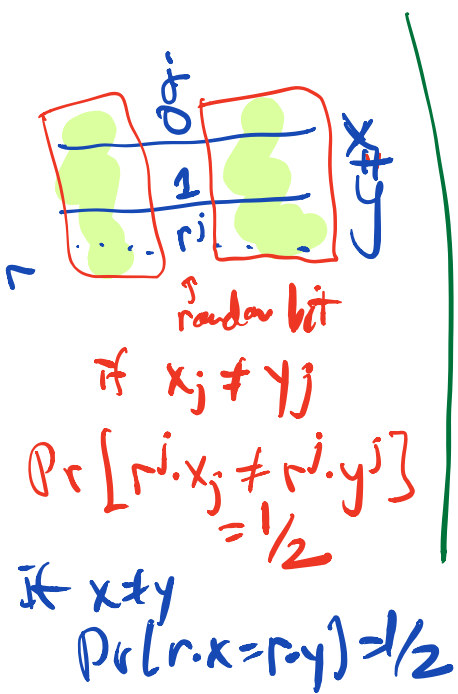 0 j
x ≠ y
1
r r^j
random bit
if x_j ≠ y_j
Pr[r^j·x_j ≠ r^j·y^j]
= 1/2
If x≠y
Pr[r·x=r·y]=1/2